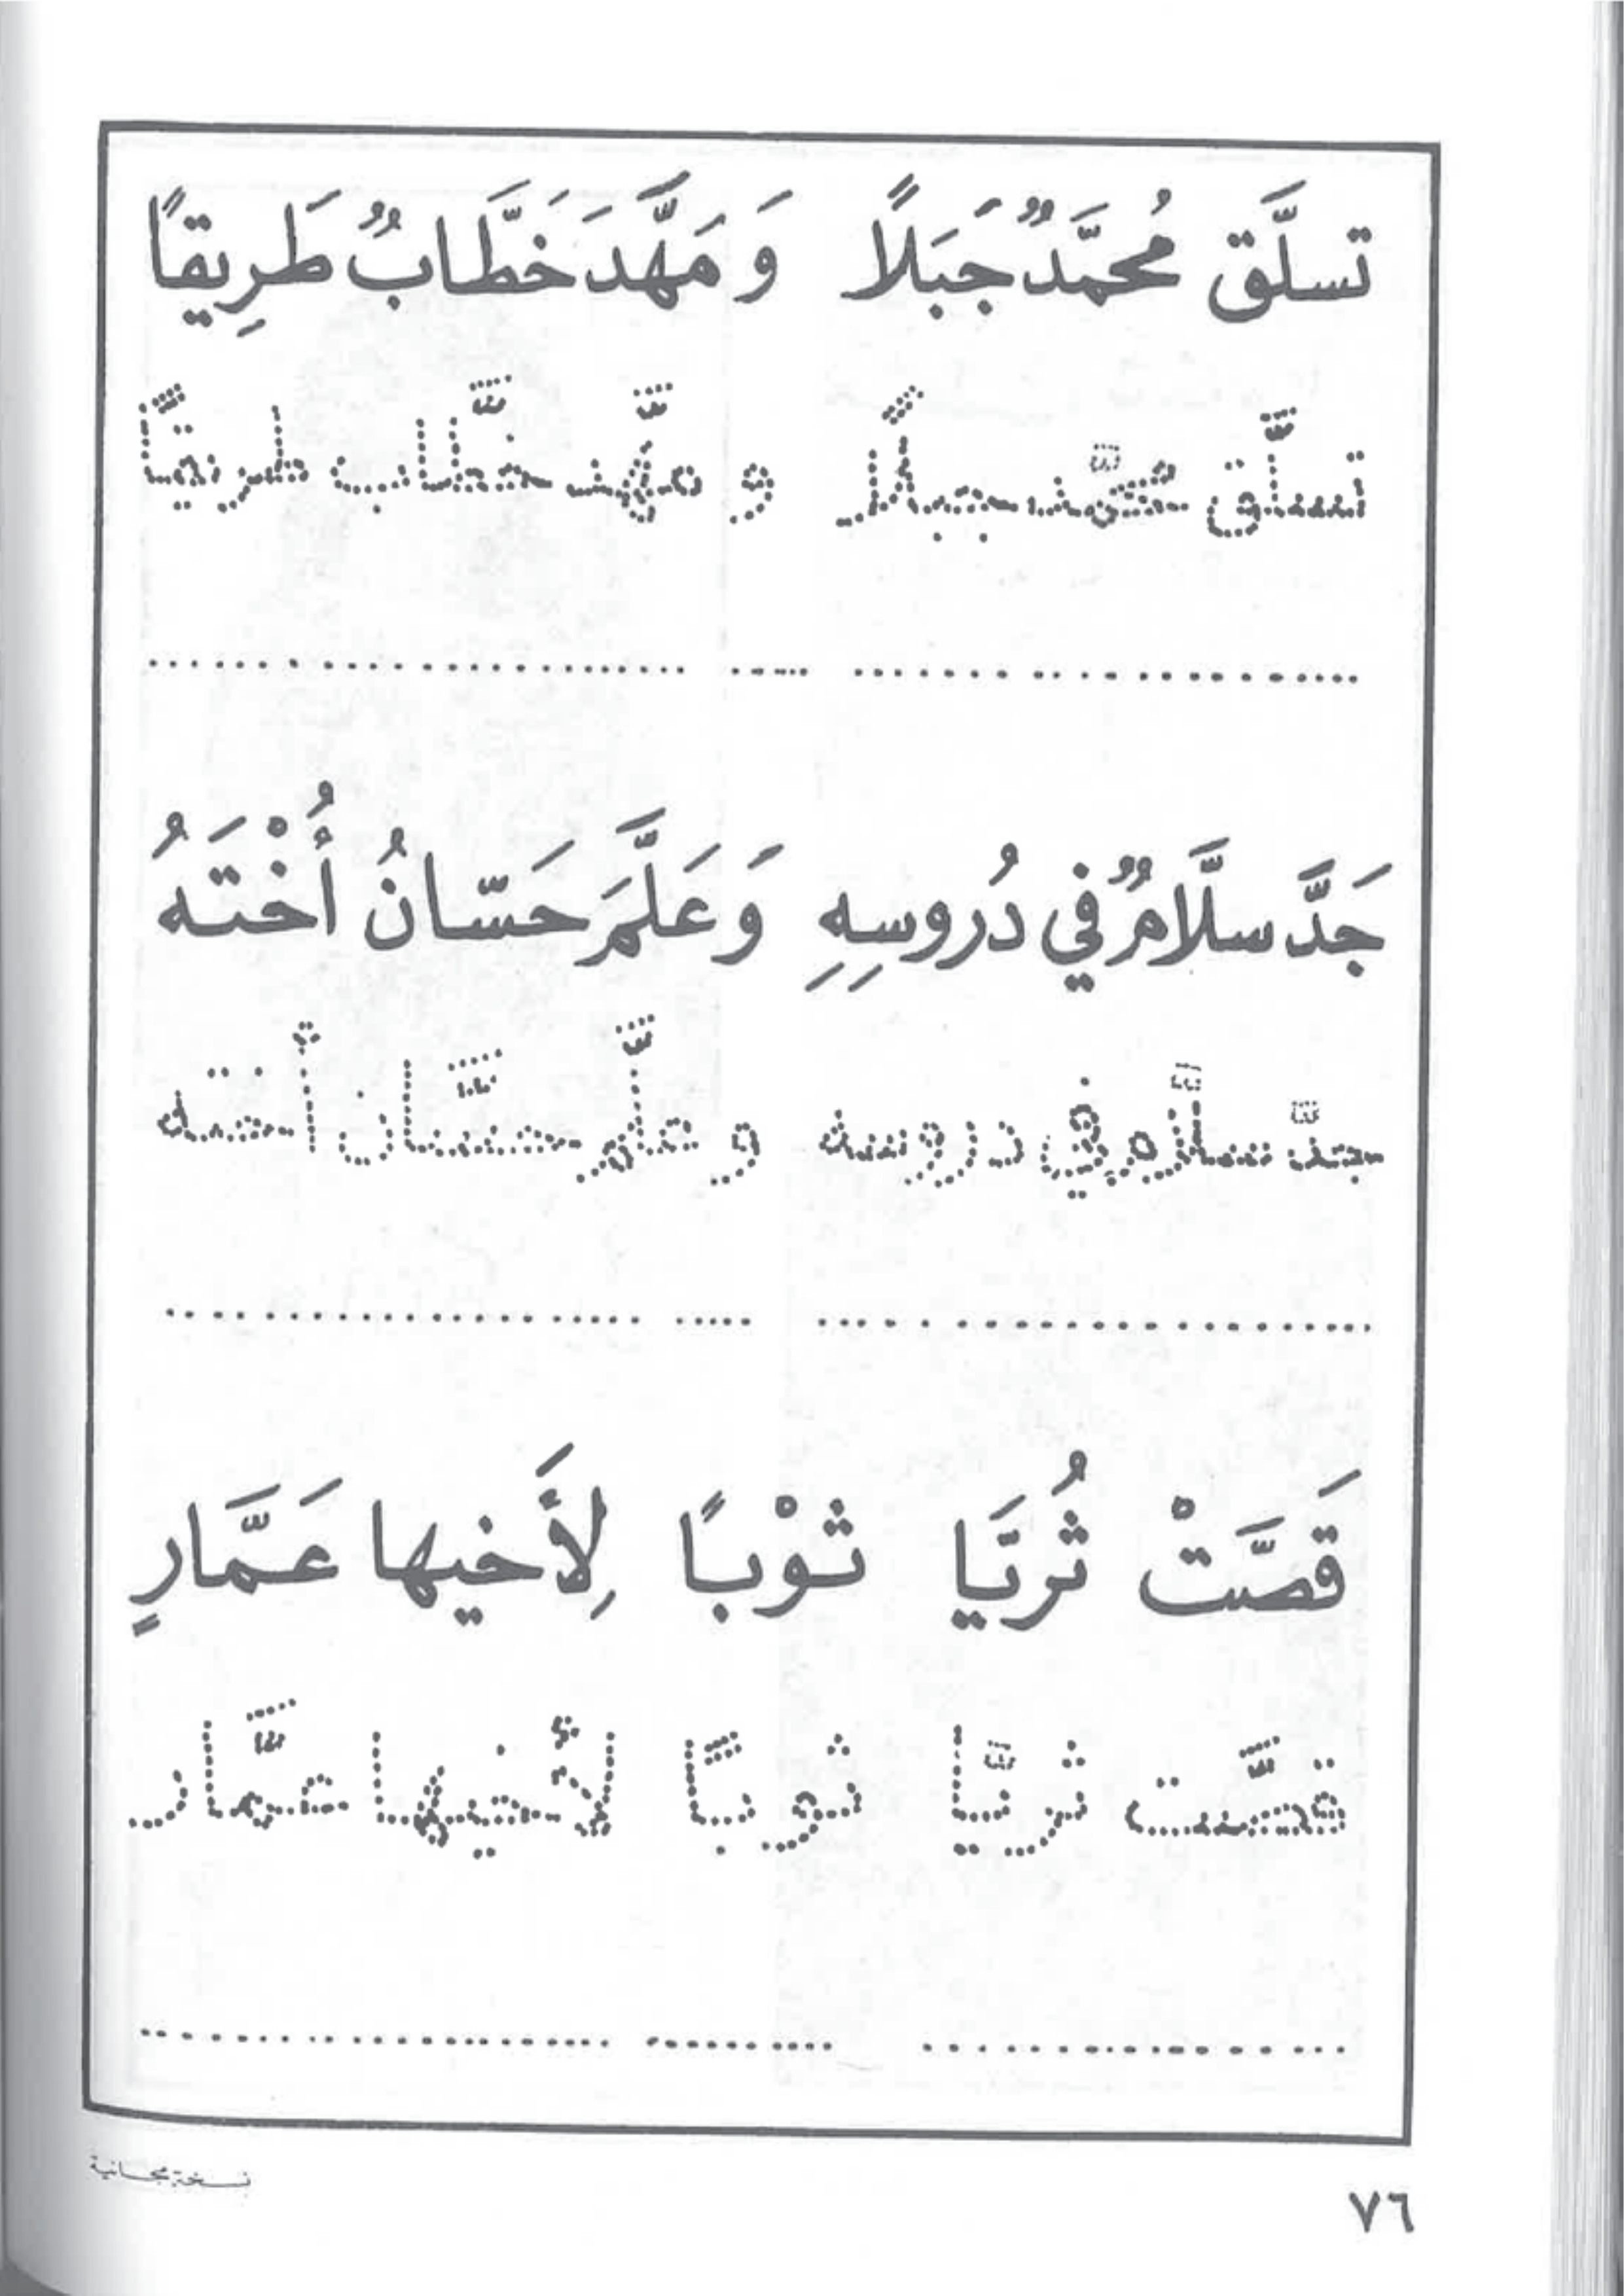 تسلَّق مُحمَّدٌ جَبَلاً وَ مَهَّدَ خَطَّابٌ طَرِيقاً
تسلَّق محمَّد جبلاً و مهَّد خطَّاب طريقاً
جَدَّ سلَّامٌ في دُروسِهِ وَ عَلَّمَ حَسّانُ أُخْتَهُ
جدَّ سلَّام في دروسه و علَّم حسَّان أخته
قَصَّتْ ثُريَّا ثوْبًا لِأَخيها عَمَّارٍ
قصَّت ثريَّا ثوبًا لأَخيها عمَّار
نسخة مجانية
٧٦